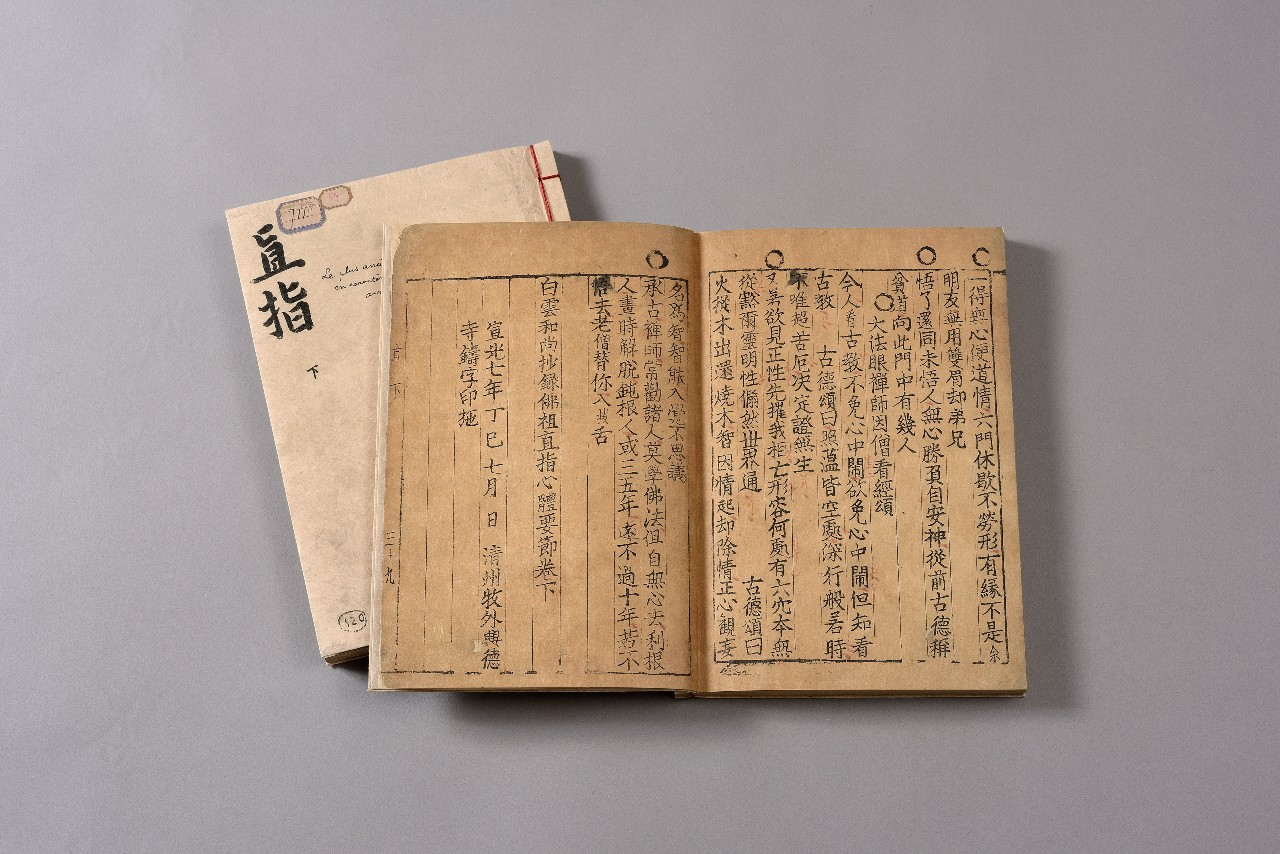 直指
下
Le plus anci
en caractè
7777
直下
三十九
得無心便道情六門休歇不勞形有緣不是余
朋友無用雙眉却弟兄
悟了還同未悟人無心勝負自安神從前古德稱
貧道向此門中有幾人
大法眼禪師因僧看經頌
今人看古教不免心中鬧欲免心中鬧但知看
古教 古德頌曰照蘊皆空處深行般若時
不唯超苦厄決定證無生 古德頌曰
又若欲見正性先摧我相亡形容何處有六穴本無
從豁爾靈明性翛然世界通
火從木出還燒木智因情起却除情正心觀妄
名爲智智能入覺不思議
承古禪師常勸諸人莫學佛法但自無心去利根
人晝時解脫鈍根人或三五年遠不過十年若不
悟去老僧替你入拔舌
白雲和尚抄錄佛祖直指心體要節卷下
宣光七年丁巳七月 日 淸州牧外興德
寺鑄字印施